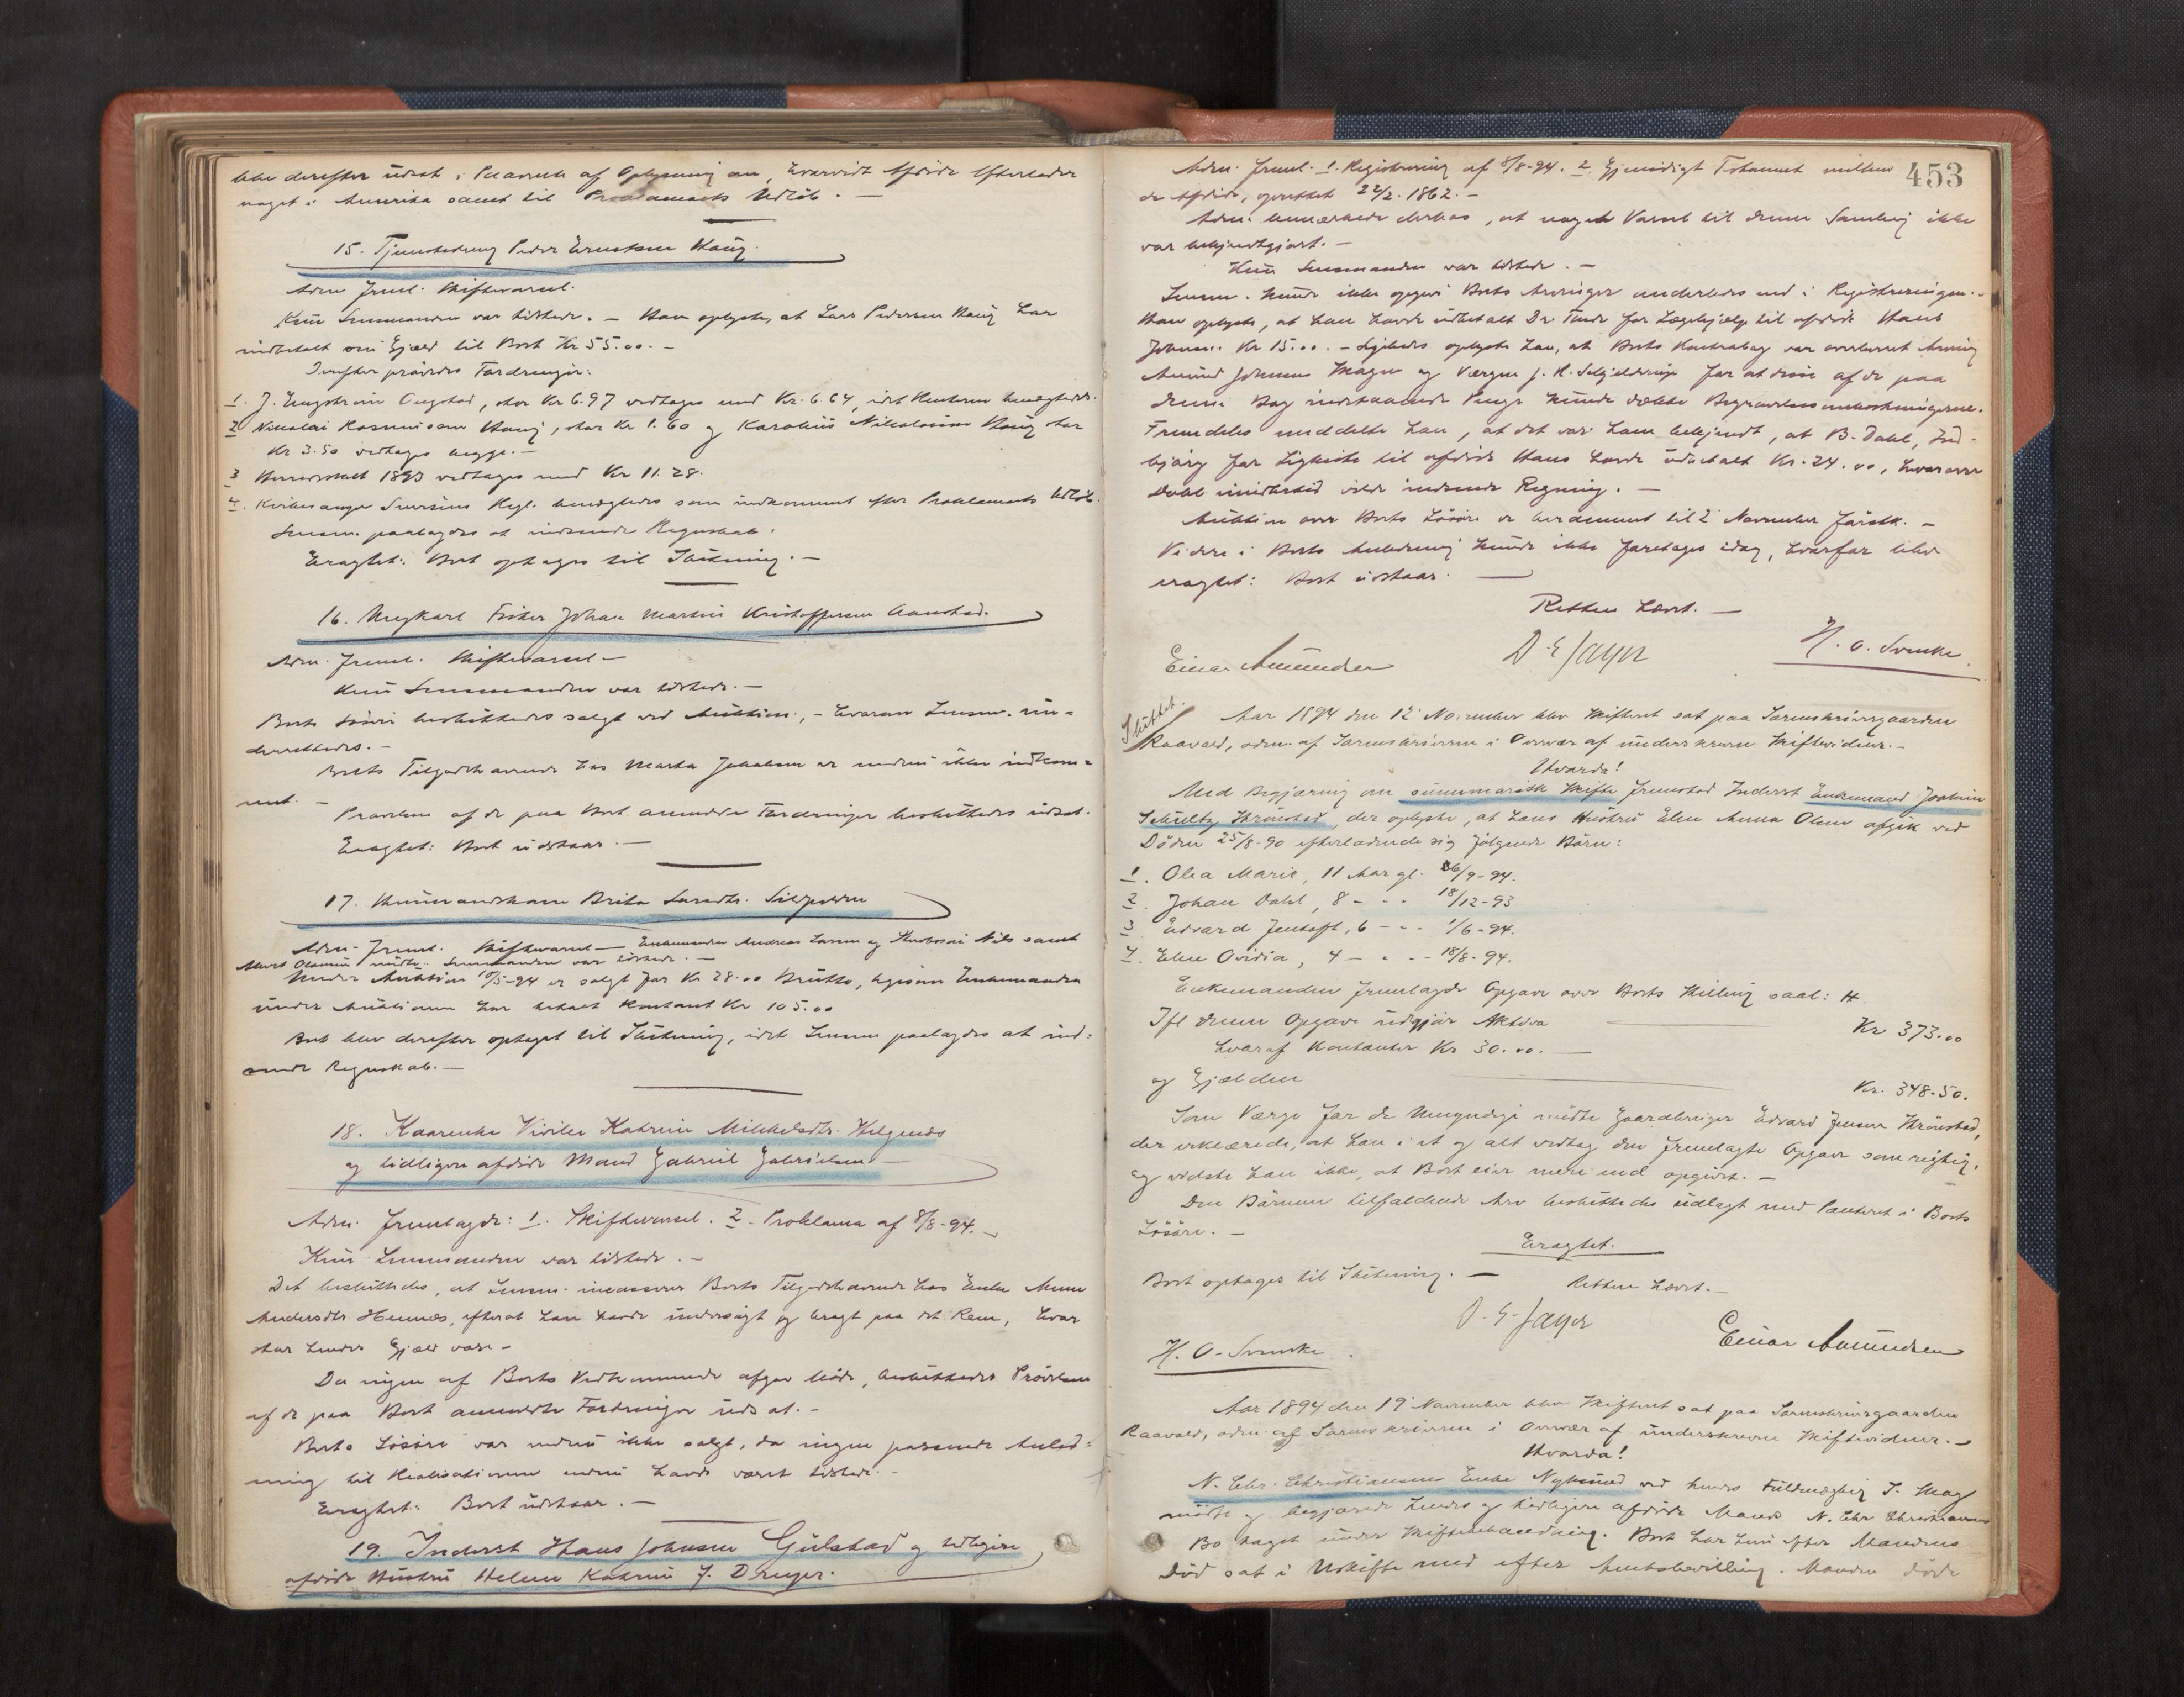 blev derefter udsat i Paavente af Oplysning om, hvorvidt Afdøde efterlader
noget i Amerika samt til Proklamaets Udløb. —
15. Tjenestedreng Peder Ernstsen Haug.
Adm. freml. Skiftevarsel.
Kun Lensmanden var tilstede. — Han oplyste, at Lars Pedersen Haug har
indbetalt sin Gjæld til Boet Kr 55.00. —
Derefter prøvedes Fordringer:
1. J. Engstrøm Ongstad, stor Kr 6.97 vedtages med Kr. 6.64, idet Renterne benægtedes.
2 Nikolai Rasmussen Haug, stor Kr 1.60 og Karolius Nikolaisen Haug stor
Kr 3.50 vedtages begge. —
3 Herredsskat 1893 vedtages med Kr 11.28.
4. Kirkesanger Sivertsens Regl. benægtedes som indkommet efter Proklamaets Udløb.
Lensm. paalagdes at indsende Regnskab.
Eragtet: Boet optages til Slutning. —
16. Ungkarl Fisker Johan Martin Kristoffersen Aanstad.
Adm. freml. Skiftevarsel —
Kun Lensmanden var tilstede. —
Boets Løsøre besluttedes solgt ved Auktion, — hvorom Lensm. un-
derrettedes. —
Boets Tilgodehavende hos Marta Jakobsen er endnu ikke indkom-
met. —
Prøvelsen af de paa Boet anmeldte Fordringer besluttedes udsat.
Eragtet: Boet udstaar. —
17. Husmandskone Brita Larsdtr. Silpolden
Adm. freml. Skiftevarsel — Enkemanden Andreas Larsen og Nils samt
mødte. Lensmanden var tilstede. —
Under Auktion 10/5-94 er solgt for Kr 28.00 Brutto, ligesom Enkemanden
under Auktionen har betalt kontant Kr 105.00
Boet blev derefter optaget til Slutning, idet Lensm paalagdes at ind-
sende Regnskab. —
18. Kaarenke Viviken Katrine Mikkelsdtr.
og tidligere afdøde Mand Gabriel Gabrielsen —
Adm. fremlagde: 1. Skiftevarsel. 2. Proklama af 8/8-94. —
Kun Lensmanden var tilstede. —
Det besluttedes, at Lensm. incasserer Boets Tilgodehavende hos Enke Anne
Andersdtr Hennes, efterat han havde undersøgt og bragt paa det Rene, hvor
stor hendes Gjæld var. —
Da ingen af Boets Vedkommende afgav Møde, besluttedes Prøvelsen
af de paa Boet anmeldte Fordringer udsat. —
Boets Løsøre var endnu ikke solgt, da ingen passende Anled-
ning til Realisationen endnu havde været tilstede. —
Eragtet: Boet udstaar. —
19. Inderst Hans Johnsen Gulstad og tidligere
afdøde Hustru Helene Katrine J. Dreyer.
453
Adm. freml. 1. Registrering af 8/8-94. 2. Gjensidigt Testament mellem
de Afdøde, oprettet 22/2. 1862. —
Adm. bemærkede derhos, at noget Varsel til denne Samling ikke
var bekjendtgjort. —
Kun Lensmanden var tilstede. —
Lensm. kunde ikke opgive Boets Arvinger anderledes end i Registreringen. —
Han oplyste, at han havde udbetalt Dr. Thode for Lægehjælp til afdøde Hans
Johnsen Kr 15.00. — Ligeledes oplyste han, at Boets Kontrabog var overleveret Arving
Amund Johnsen og Værgen J. R. Schjelderup for at disse af de paa
denne Bog indestaaende Penge kunde dække Begravelsesomkostningerne.
Fremdeles meddelte han, at det var ham bekjendt, at B. Dahl,
for Ligkiste til afdøde Hans havde udbetalt Kr. 24.00, hvorover
Dahl imidlertid vilde indsende Regning. —
Auktion over Boets Løsøre er berammet til 2 November førstk. —
Videre i Boets Anledning kunde ikke foretages idag, hvorfor blev
eragtet: Boet udstaar. —
Retten hævet. —
Einar Amundsen
D. E. Jayer
H. O. Svenke
Sluttet.
Aar 1894 den 12 November blev Skifteret sat paa Sorenskrivergaarden
Raavold, adm. af Sorenskriveren i Overvær af underskrevne Skiftevidner. —
Hvorda!
Med Begjæring om summarisk Skifte fremstod Inderst Enkemand Joakim
Schultz Skrovstad, der oplyste, at hans Hustru Elen Anna Olsen afgik ved
Døden 25/8-90 efterladende sig følgende Børn:
1. Olea Marie, 11 Aar gl. 26/9-94.
2. Johan Dahl, 8 - " - 18/12-93
3. Edvard Jentoft, 6 - " - 1/6-94.
4. Elen Ovidia, 4 - " - 18/8-94.
Enkemanden fremlagde Opgave over Boets Stilling saal: H.
Ifl denne Opgave udgjør Aktiva — Kr 373.00
hvoraf Kontanter Kr 30.00. —
og Gjælden — Kr. 348.50.
Som Værge for de Umyndige mødte Gaardbruger Edvard Jensen Skrovstad,
der erklærede, at han i et og alt vedtog den fremlagte Opgave som rigtig,
og vidste han ikke, at Boet eier mere end opgivet. —
Den Børnene tilfaldende Arv besluttedes udlagt med Panteret i Boets
Løsøre. —
Eragtet.
Boet optages til Slutning. —
Retten hævet. —
D. E. Jayer
H. O. Svenke
Einar Amundsen
Aar 1894 den 19 November blev Skifteret sat paa Sorenskrivergaarden
Raavold, adm. af Sorenskriveren i Overvær af underskrevne Skiftevidner. —
Hvorda!
N. Chr. Christiansens Enke Nyksund ved hendes Fuldmægtig S.
mødte og begjærede hendes og tidligere afdøde Mands N. Chr Christiansens
Bo taget under Skiftebehandling. Boet har hun efter Mandens
Død sat i Uskifte med efter Amtsbevilling. Manden døde